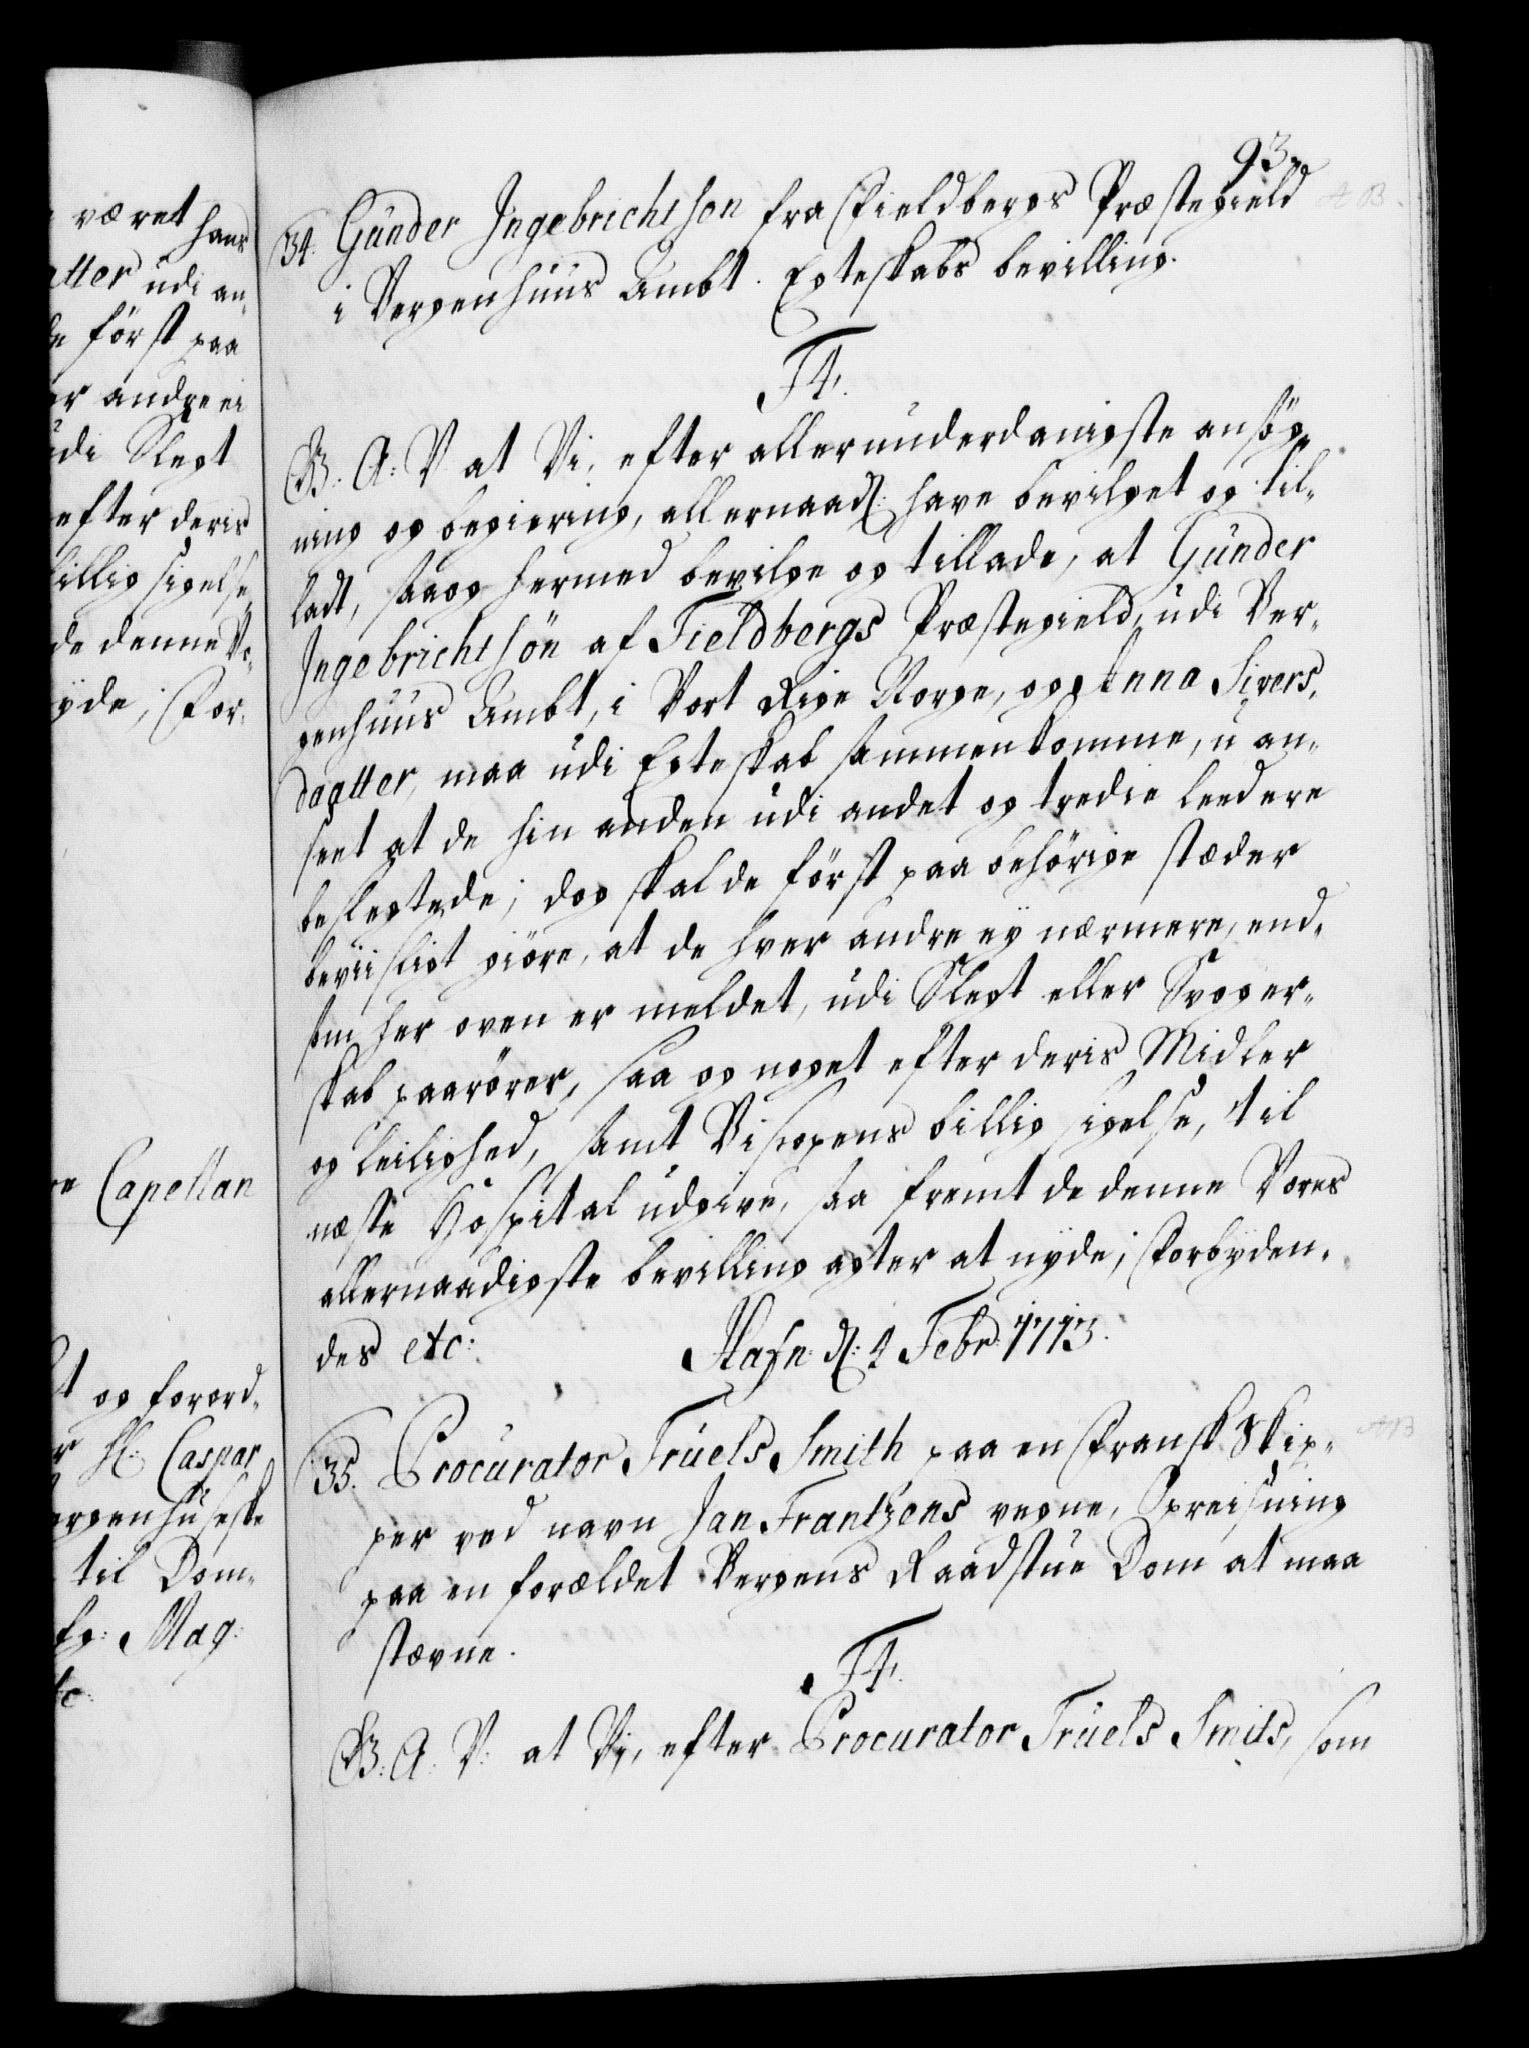 været hans
atter udi an-
de först paa
er andre ei
udi Slegt
efter deris
billig sigelse
de denne Vo-
yde; For-
re Capellan
og forord-
r Hr: Caspar
ergenhuseske
til Dom-
Mag:
93.
34. Günder Ingebrichtson fra Fieldbergs Præstegield
i Bergenhuus Ambt. Egteskabs bevilling.
F4.
G: A: V at Vi, efter allerunderdanigste ansøg-
ning og begiering, allernaad: have bevilget og til-
ladt, saa og hermed bevilge og tillade, at Günder
Ingebrichtsön af Fieldbergs Præstegield, udi Ber-
genhuus Ambt, i Vort Rige Norge, og Anna Sivers-
daatter, maa udi Egteskab sammenkomme, u an-
seet at de hin anden udi andet og tredie leed ere
beslegtede; dog skal de först paa behörige stæder
beviisligt giöre, at de hver andre ey nærmere, end-
som her oven er meldet, udi Slegt eller Svoger-
skab paarörer, saa og noget efter deris Midler
og leilighed, samt Biscopens billig sigelse, til
næste Hospital udgive, saa fremt de denne Vores
allernaadigste bevilling agter at nyde; Forbyden-
des etc: Hafn: d: 4 Febr: 1713.
35. Procurator Trüels Smith paa en Fransk Skip-
per ved navn Jan Frantzens vegne, Opreisning
paa en forældet Bergens Raadstue Dom at maa
stævne.
F4.
G: A: V: at Vi, efter Procurator Trüels Smits, som